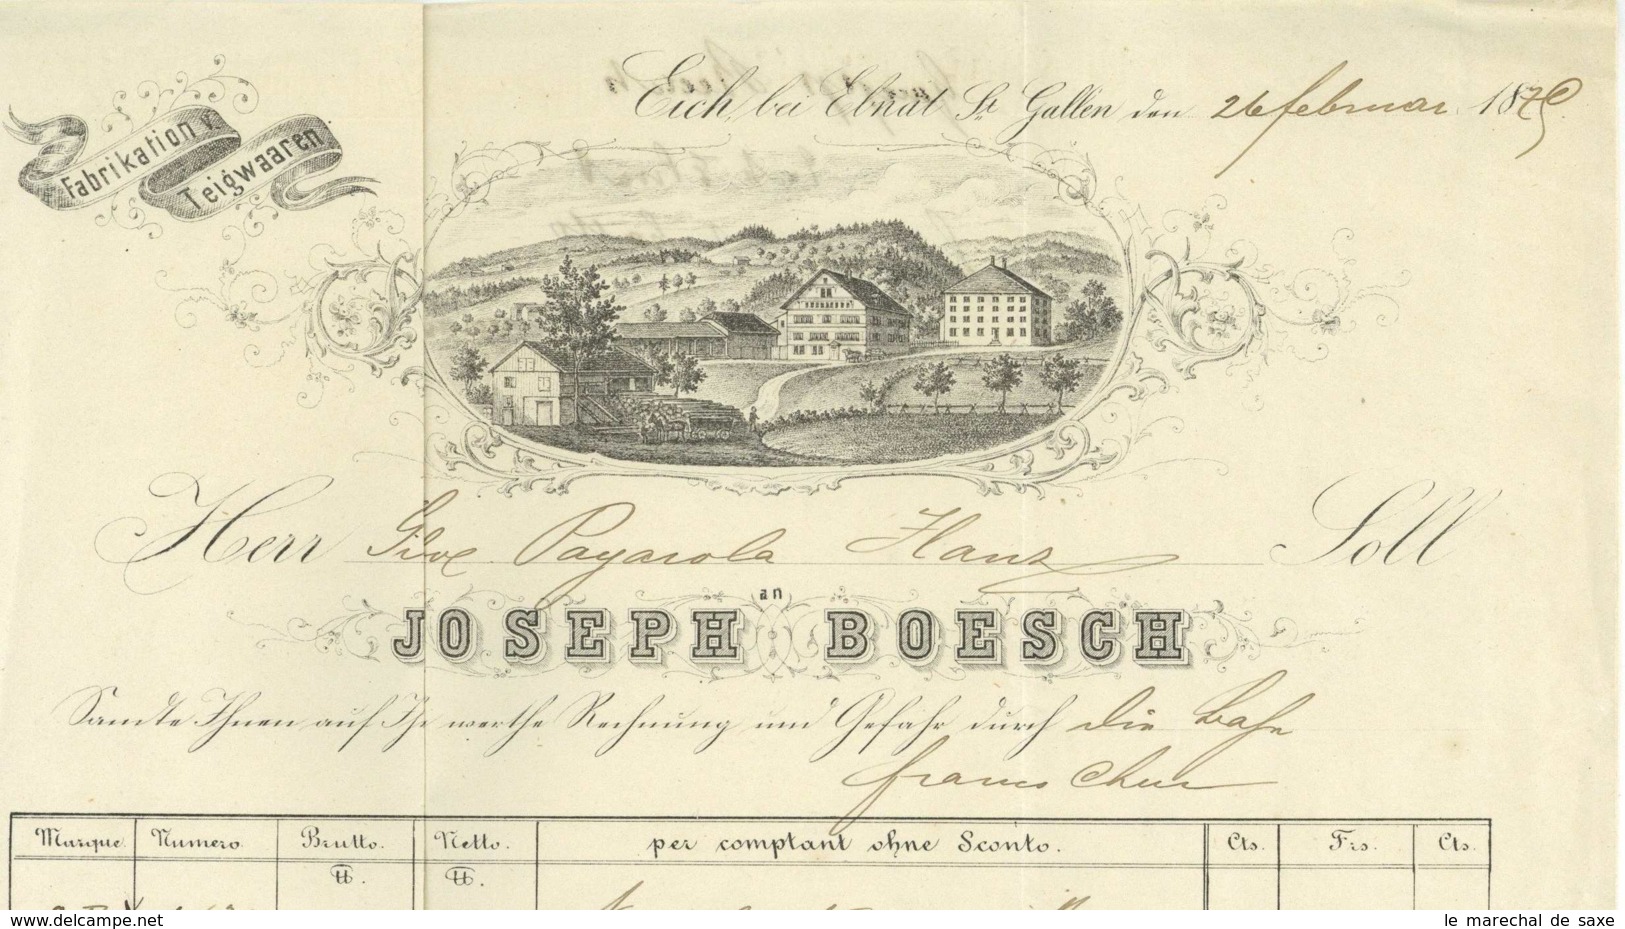 Fabrikation v.
Teigwaaren
Eich, bei Ebnat St. Gallen den 26 februar 1879.
Herr Silve Pagarola Hanz Soll
an
JOSEPH BOESCH
Sandte Ihnen auf Ihr werthe Rechnung und Gefahr durch die bahn
franco Chur
Marque. Numero. Brutto. Netto. per comptant ohne Sconto. Cts. Frs. Cts.
℔. ℔.
www.delcampe.net
le marechal de saxe